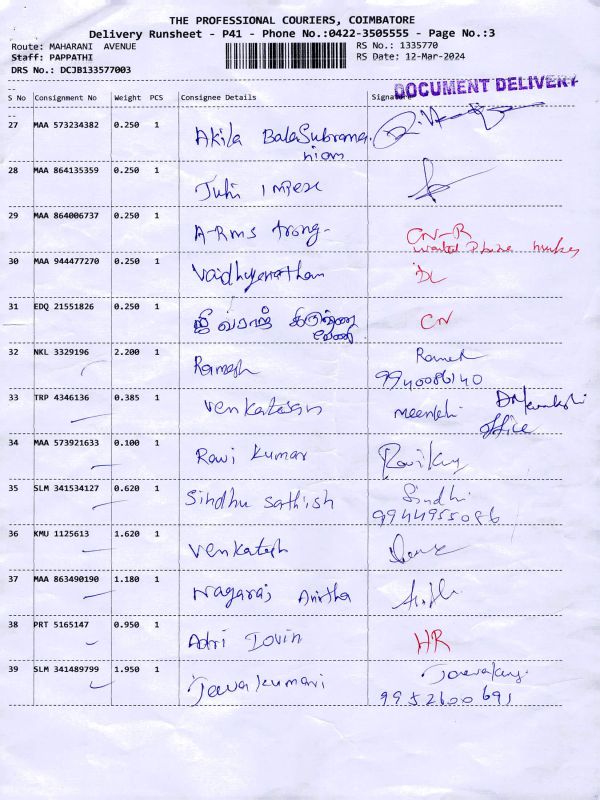 THE PROFESSIONAL COURIERS, COIMBATORE
Delivery Runsheet - P41 - Phone No.:0422-3505555 - Page No.:3
Route: MAHARANI AVENUE RS No.: 1335770
Staff: PAPPATHI RS Date: 12-Mar-2024
DRS No.: DCJB133577003
DOCUMENT DELIVERY
S No Consignment No Weight PCS Consignee Details Signature
27 MAA 573234382 0.250 1 Akila BalaSubrama
nian
28 MAA 864135359 0.250 1 Juhi Impex
29 MAA 864006737 0.250 1 A-Rms CN-R
wanted Phone number
30 MAA 944477270 0.250 1 Vaidhyanathan DL
31 EDQ 21551826 0.250 1 CN
32 NKL 3329196 2.200 1 Ramesh Ramesh
9940086140
33 TRP 4346136 0.385 1 Venkatesan meenkshi
office
34 MAA 573921633 0.100 1 Ravi Kumar
35 SLM 341534127 0.620 1 Sindhu Sathish Sindhi
9944955086
36 KMU 1125613 1.620 1 Venkatesh
37 MAA 863490190 1.180 1 Nagaraj Anitha
38 PRT 5165147 0.950 1 Adri Jovin HR
39 SLM 341489799 1.950 1 Jeeva kumari
9952600691